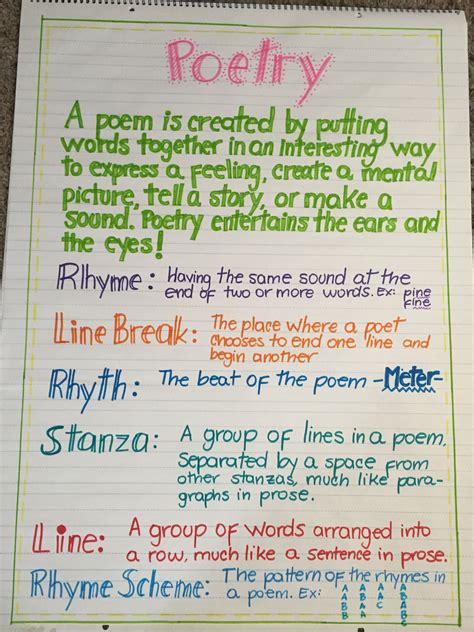 Poetry
A poem is created by putting
words together in an interesting way
to express a feeling, create a mental
picture, tell a story, or make a
sound. Poetry entertains the ears and
the eyes!
Rhyme: Having the same sound at the
end of two or more words. Ex: pine
fine
Line Break: The place where a poet
chooses to end one line and
begin another
Rhyth: The beat of the poem -Meter-
Stanza: A group of lines in a poem.
Separated by a space from
other stanzas, much like para-
graphs in prose.
Line: A group of words arranged into
a row, much like a sentence in prose.
Rhyme Scheme: The pattern of the rhymes in
a poem. Ex:
A A A A
A B A B
B A C A
B A B
C